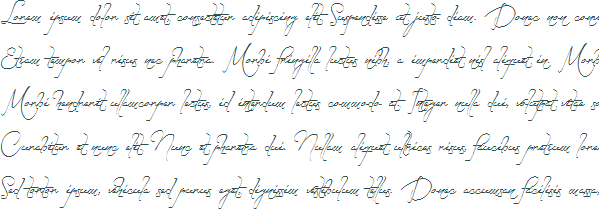 Lorem ipsum dolor sit amet, consectetur adipiscing elit. Suspendisse at justo diam. Donec non
Etiam tempor vel risus nec pharetra. Morbi fringilla luctus nibh, a imperdiet nisl aliquet in. Morbi
Morbi hendrerit ullamcorper lectus, id interdum lectus commodo at. Integer nulla dui, volutpat vitae
Curabitur et nunc elit. Nunc et pharetra dui. Nullam aliquet ultrices risus, faucibus pretium
Sed tortor ipsum, vehicula sed purus eget, dignissim vestibulum tellus. Donec accumsan facilisis massa,